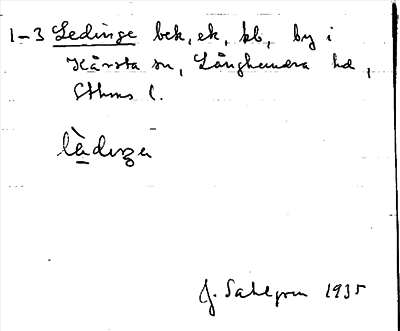 1-3 Ledinge bek, ek, kb, by i
Kårsta sn, Långhundra hd,
Sthms l.
lèdiŋe
J. Sahlgren 1935